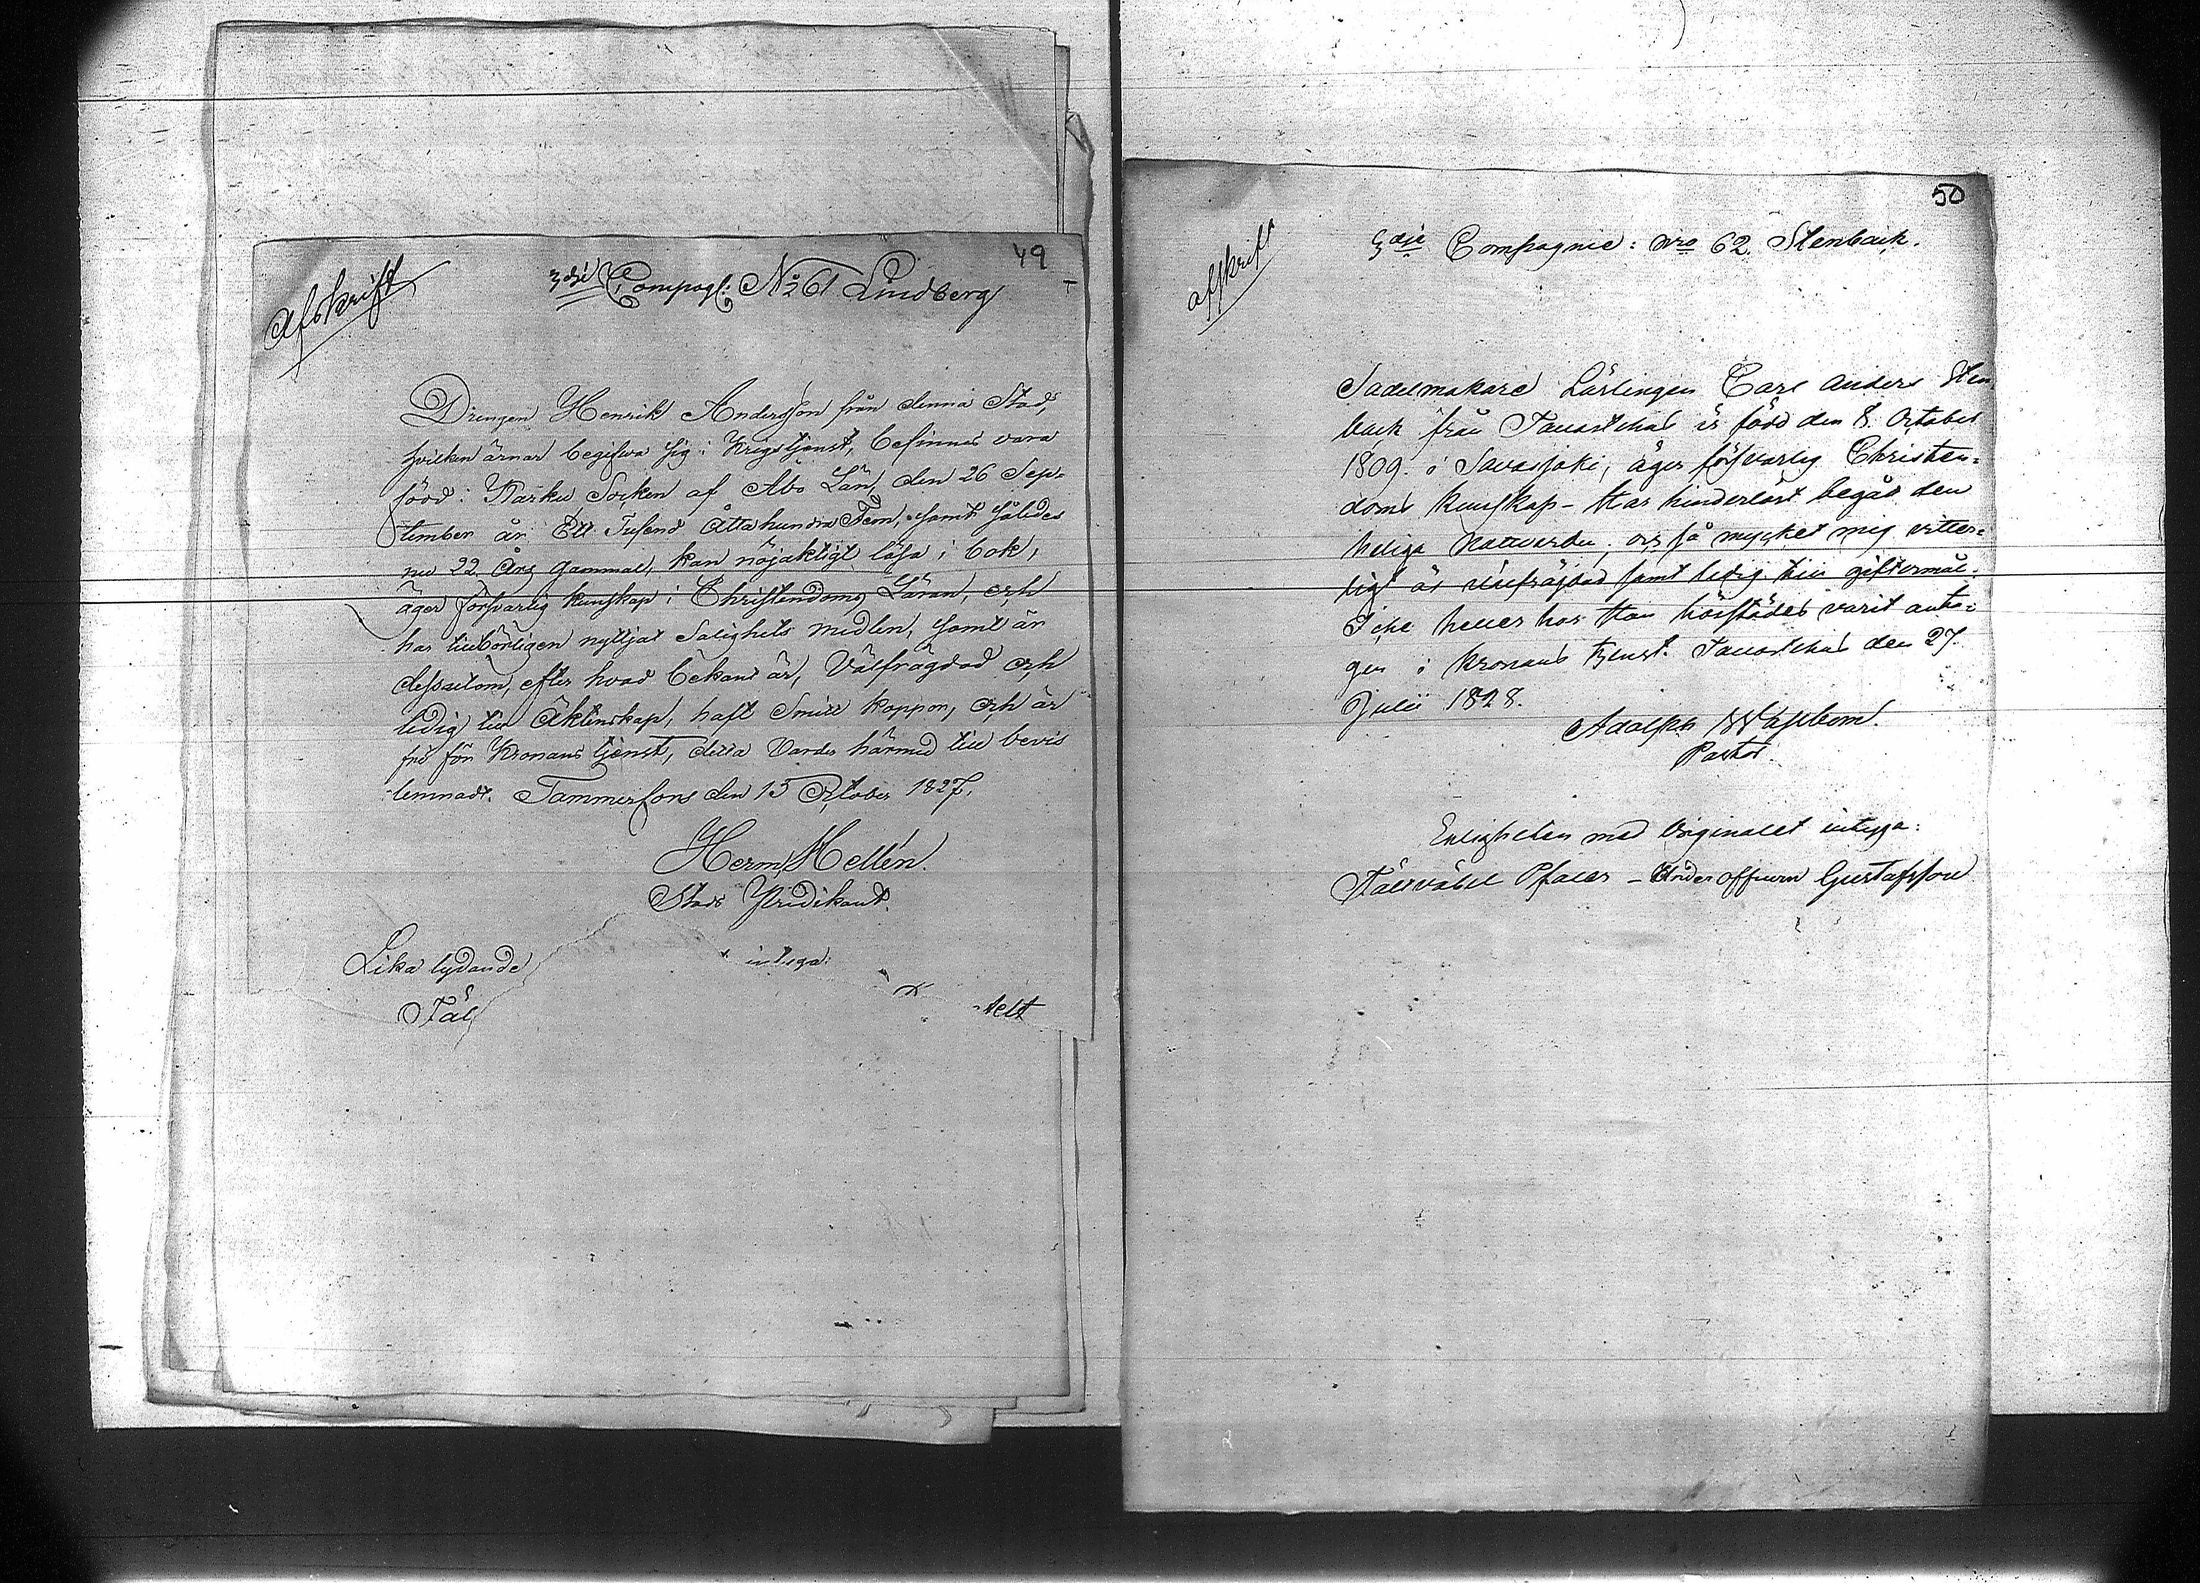 49
Afskrift
3dje Compag: No 61 Lindberg
Drengen Henrik Andersson från denna Stad,
hvilken ärnar begifva sig i Krigstjenst, befinnes vara
född i Karku Socken af Åbo Län, den 26 Sep-
tember år Ett Tusend Åttahundra Fem, samt således
nu 22 Års gammal, kan nöjaktigt läsa i bok,
äger försvarlig kunskap i Christendoms Läran, och
har tillbörligen nyttjat Salighets medlen, samt är
dessutom, efter hvad bekant är, Välfrägdad och
ledig till Äktenskap, haft Smitt koppor, och är
fri för Kronans tjenst, detta Vardes härmed till bevis
lemnadt. Tammerfors den 13 October 1827.
Herm Hellén.
Stads Predikant.
Lika lydande intyga:
Fäl
50
afskrift
3dje Compagnie: nro 62. Stenback.
Sadelmakare Lärlingen Carl Anders Sten
back från Tavastehus är född den 8. October
1809. i Savasjoki, äger försvarlig Christen-
doms kunskap - Har hinderlöst begådt den
heliga Nattvarden, och så mycket mig vitter-
ligt är välfrägdad samt ledig till giftermål.
Icke heller har Han härstädes varit anta-
gen i Kronans tjenst. Tavastehus den 27
Julii 1828.
Adolph Wahlbom.
Pastor.
Enligheten med Originalet intyga:
Fältväbel Pfaler - Underofficern Gustafsson